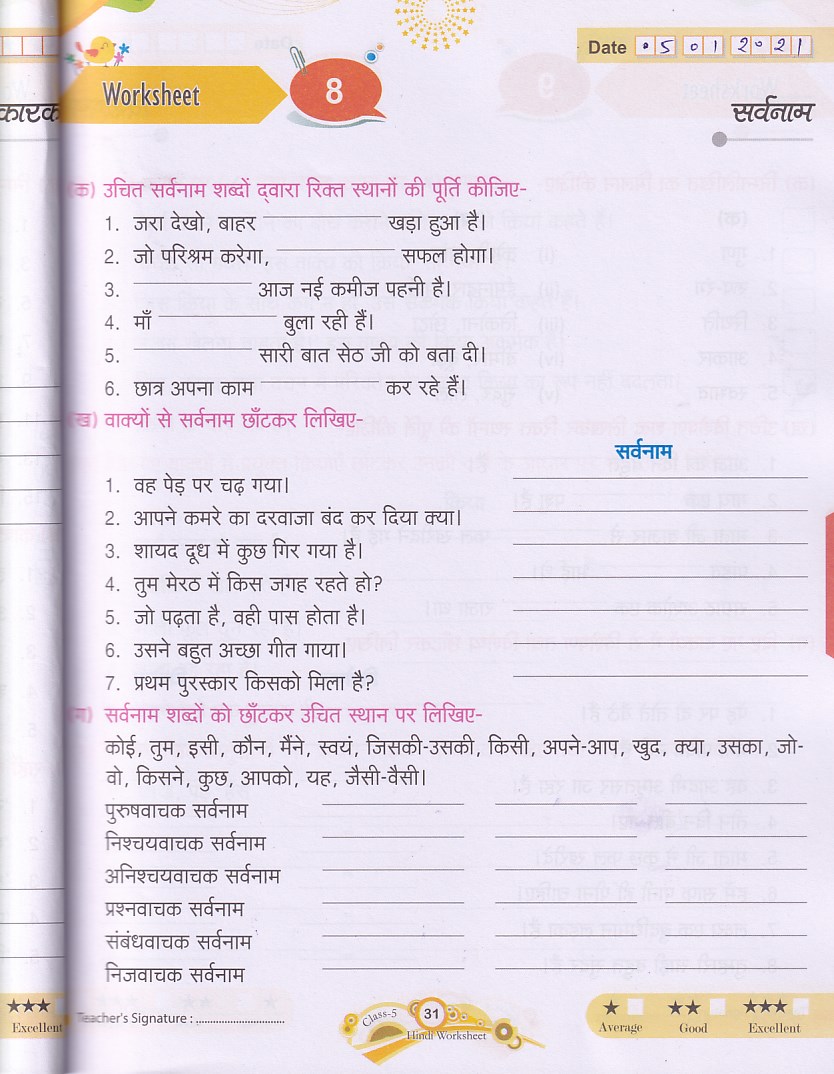 Date 05 01 2021
Worksheet 8
कारक
सर्वनाम
(क) उचित सर्वनाम शब्दों द्वारा रिक्त स्थानों की पूर्ति कीजिए-
1. जरा देखो, बाहर ____________ खड़ा हुआ है।
2. जो परिश्रम करेगा, ____________ सफल होगा।
3. ____________ आज नई कमीज पहनी है।
4. माँ ____________ बुला रही हैं।
5. ____________ सारी बात सेठ जी को बता दी।
6. छात्र अपना काम ____________ कर रहे हैं।
(ख) वाक्यों से सर्वनाम छाँटकर लिखिए-
सर्वनाम
1. वह पेड़ पर चढ़ गया।
2. आपने कमरे का दरवाजा बंद कर दिया क्या।
3. शायद दूध में कुछ गिर गया है।
4. तुम मेरठ में किस जगह रहते हो?
5. जो पढ़ता है, वही पास होता है।
6. उसने बहुत अच्छा गीत गाया।
7. प्रथम पुरस्कार किसको मिला है?
(ग) सर्वनाम शब्दों को छाँटकर उचित स्थान पर लिखिए-
कोई, तुम, इसी, कौन, मैंने, स्वयं, जिसकी-उसकी, किसी, अपने-आप, खुद, क्या, उसका, जो-
वो, किसने, कुछ, आपको, यह, जैसी-वैसी।
पुरुषवाचक सर्वनाम
निश्चयवाचक सर्वनाम
अनिश्चयवाचक सर्वनाम
प्रश्नवाचक सर्वनाम
संबंधवाचक सर्वनाम
निजवाचक सर्वनाम
Excellent
Teacher's Signature : ..............................
Class-5 31 Hindi Worksheet
Average Good Excellent